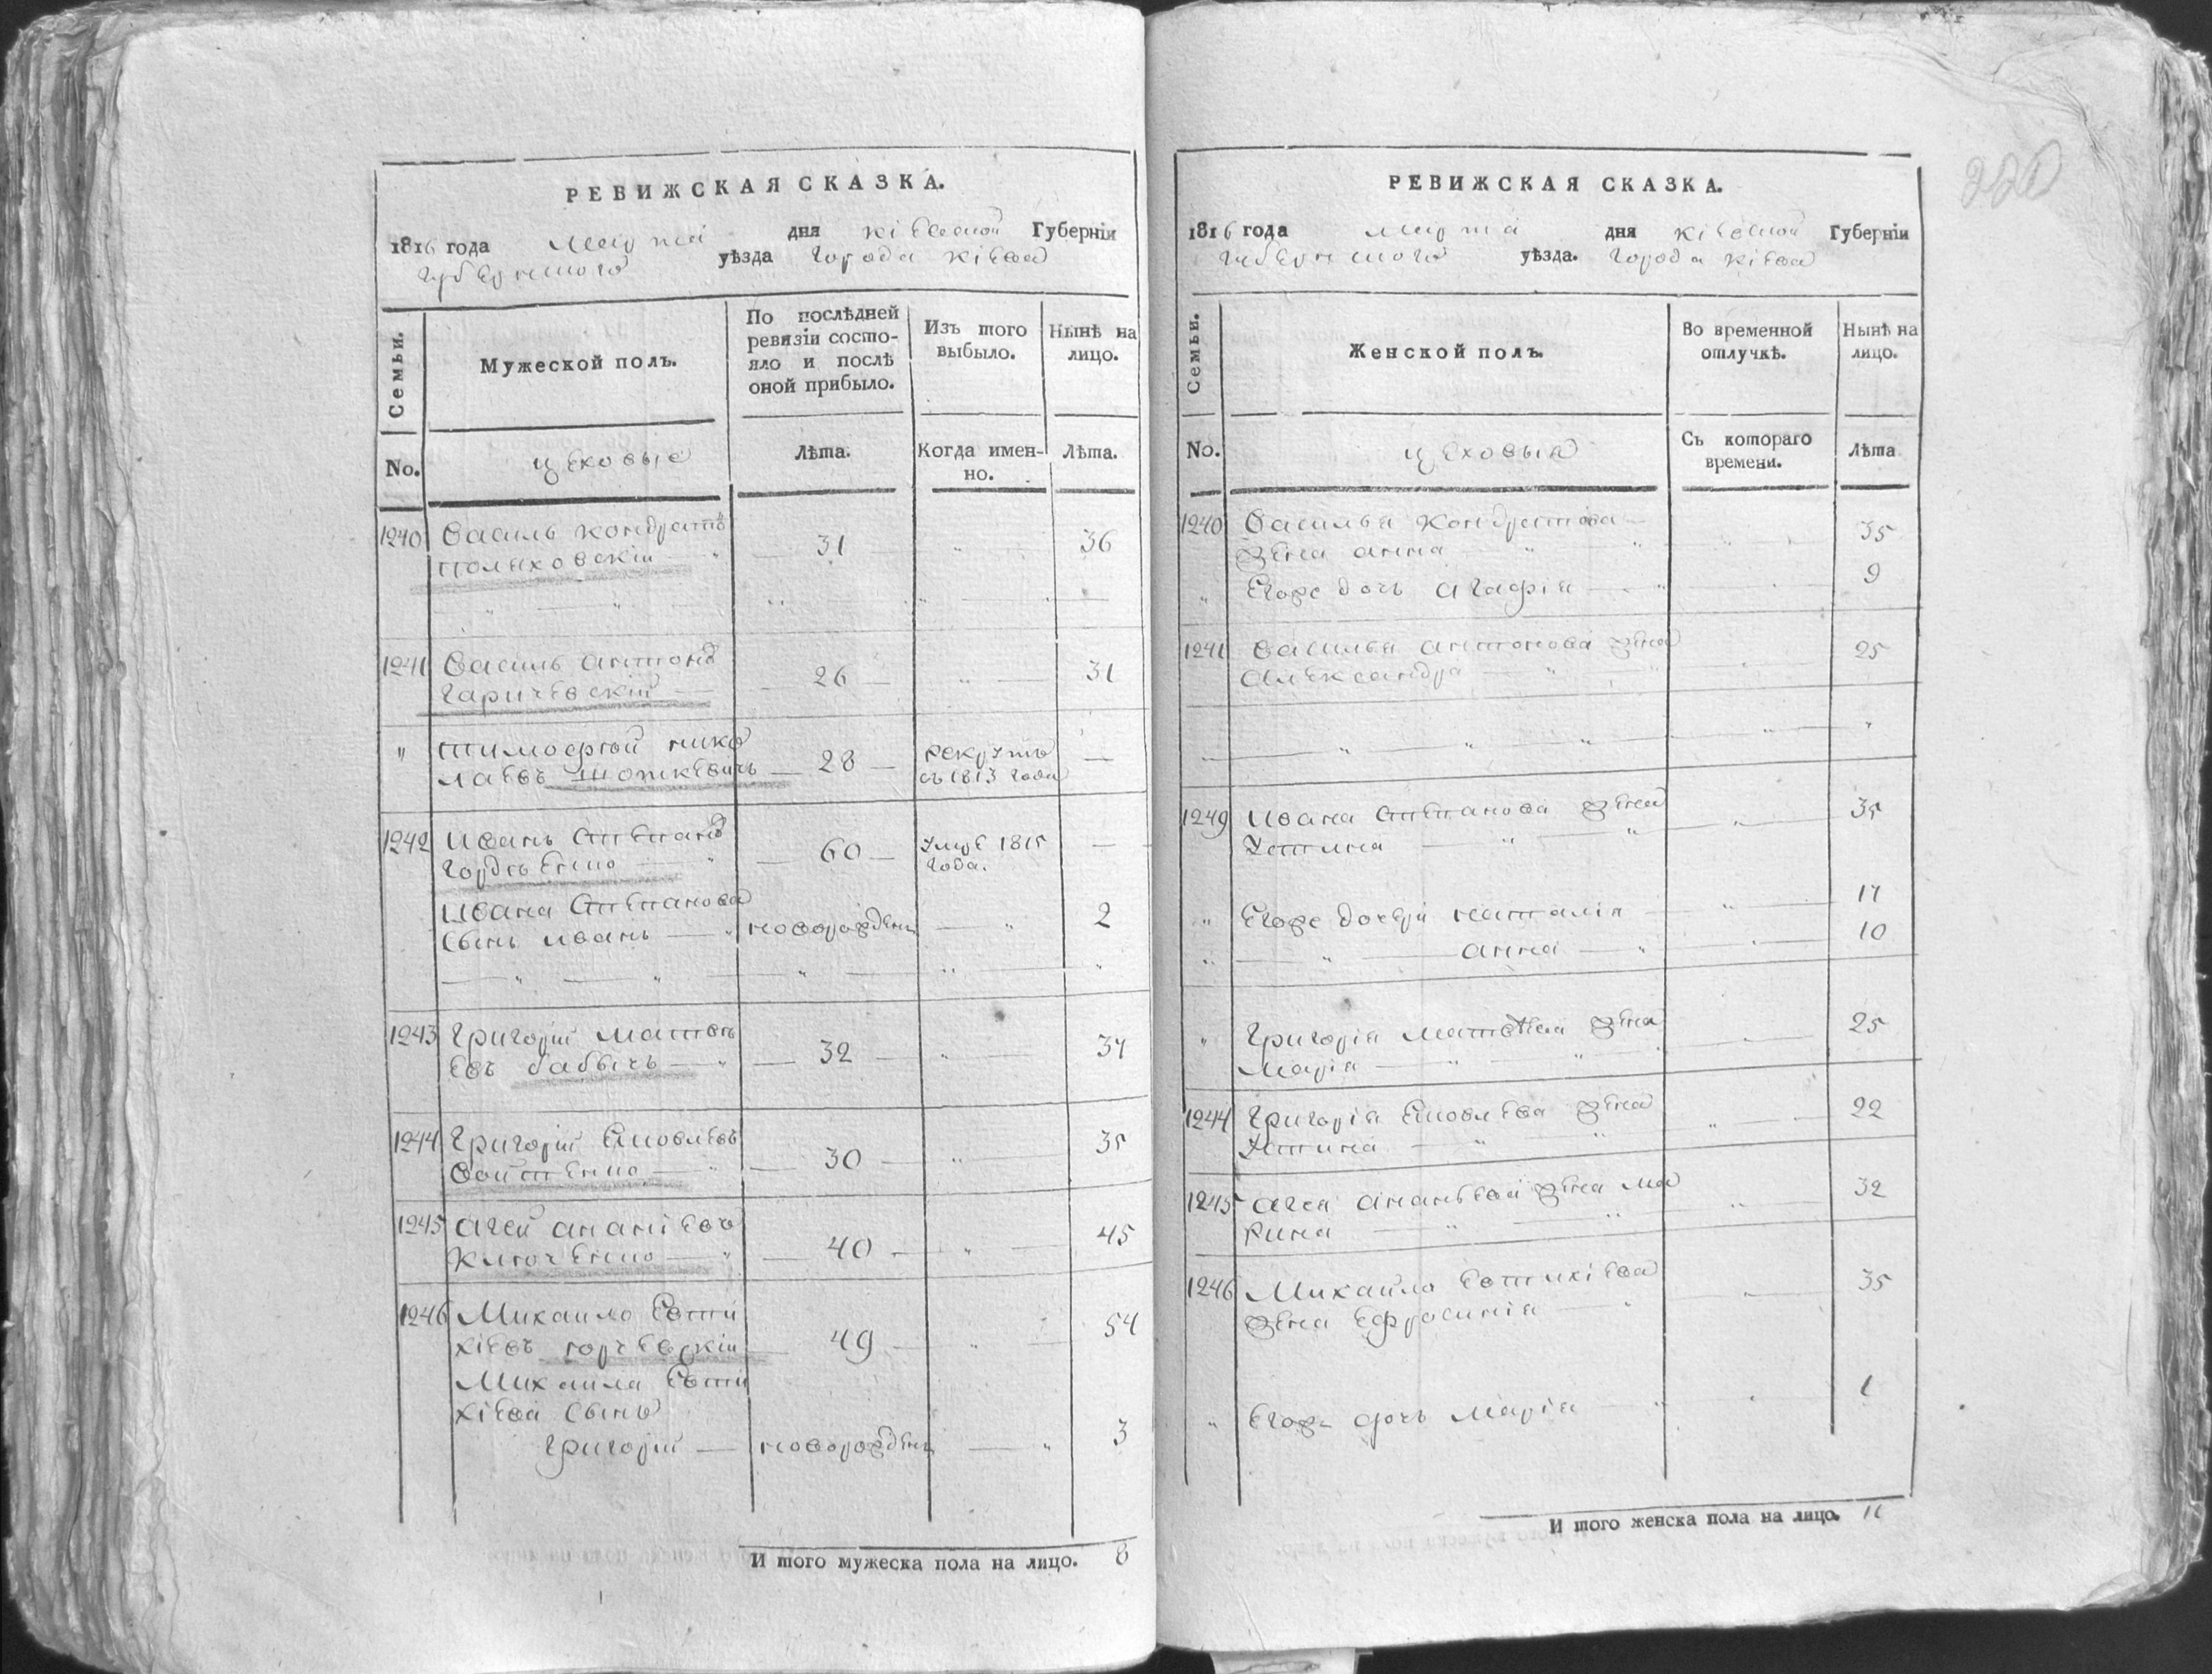 РЕВИЖСКАЯ СКАЗКА.
1816 года Марта дня Кіевской Губерніи
Губернскаго уѣзда Города Кіева
Семьи.
Мужеской полъ.
По послѣдней ревизіи состо-
яло и послѣ оной прибыло.
Изъ того выбыло.
Нынѣ на лицо.
No.
цеховые
Лѣта.
Когда имен-
но.
Лѣта.
1240 Василь Кондратъ
Поляховскій 31 36
1241 Василь Антонъ
Гаричевскій 26 31
Тимофей Нико
лаевъ Шоткевичъ 28 рекрутъ съ 1813 года
1242 Иванъ Степанъ
Гордѣенко 60 умре 1815 года.
Ивана Степанова
сынъ Иванъ новорожденъ 2
1243 Григорій Матвѣ
евъ Бабычъ 32 37
1244 Григорій Яковлевъ
Войтенко 30 35
1245 Агей Ананіевъ
Ключенко 40 45
1246 Михаило Евти
хіевъ Горчевскій 49 54
Михаила Евти
хіева сынъ
Григорій новорожденъ 3
И того мужеска пола на лицо. 8
220
РЕВИЖСКАЯ СКАЗКА.
1816 года Марта дня Кіевской Губерніи
Губернскаго уѣзда. Города Кіева
Семьи.
Женской полъ.
Во временной отлучкѣ.
Нынѣ на лицо.
No.
цеховыя
Съ котораго времени.
Лѣта
1240 Василья Кондратова
жена Анна 35
Егожъ дочь Агафія 9
1241 Василья Антонова жена
Александра 25
1249 Ивана Степанова жена
Устина 35
Егоже дочери Наталія 17
Анна 10
Григорія Матвѣева жена
Марія 25
1244 Григорія Яковлева жена
Устина 22
1245 Агея Ананьева жена Ма
рина 32
1246 Михайла Евтихіева
жена Ефросинія 35
Егожъ дочь Марія 1
И того женска пола на лицо. 11